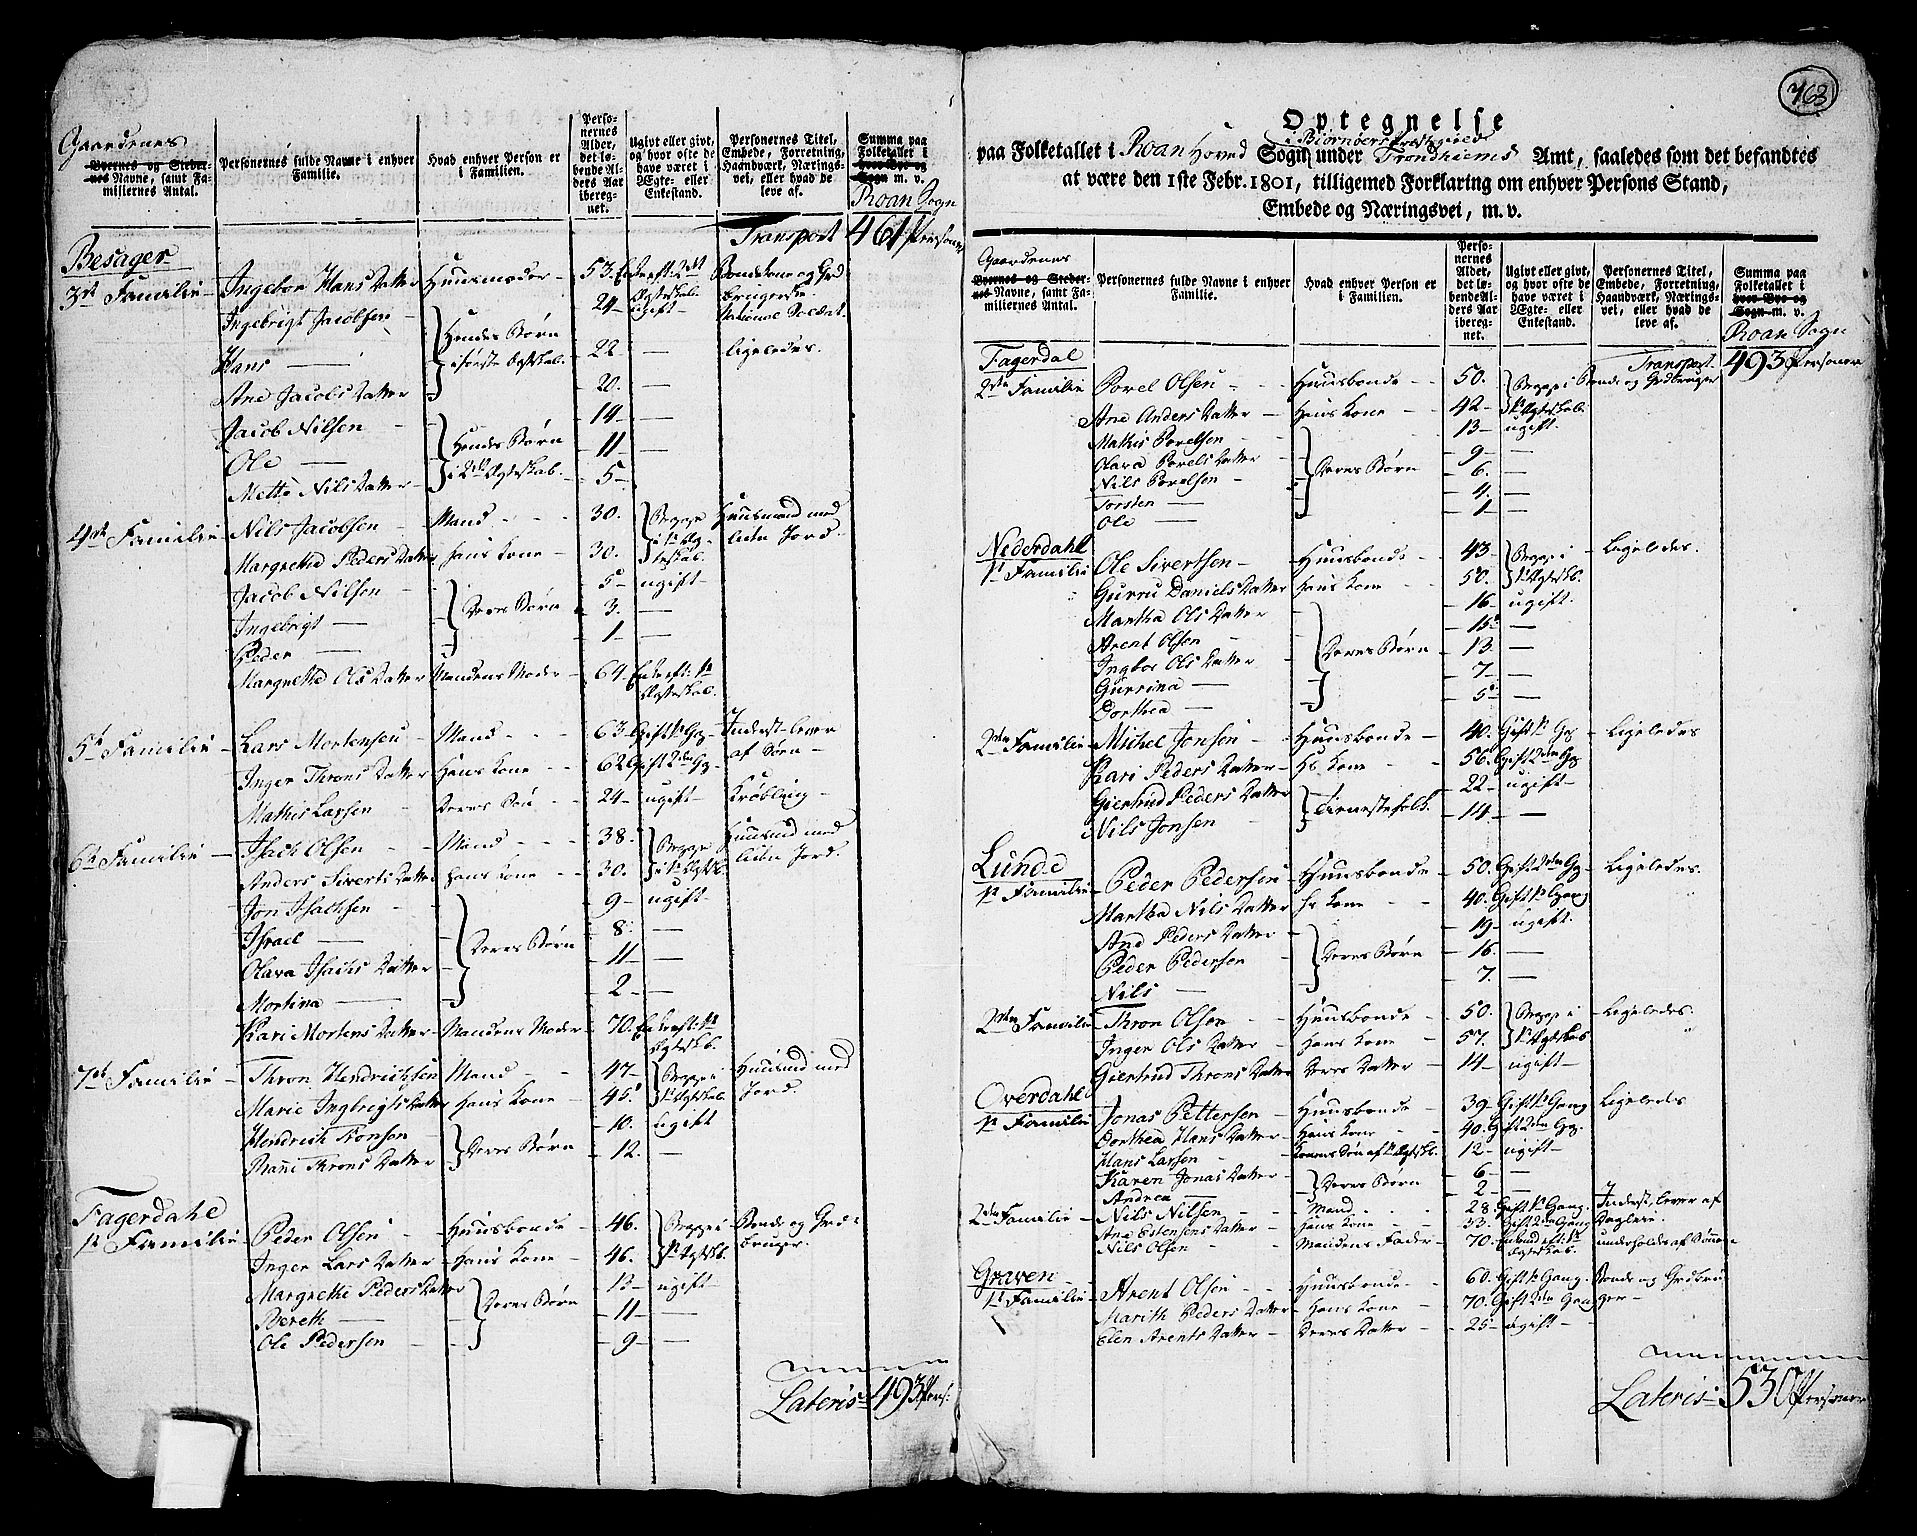 Gaardenes
Byernes og Stedernes Navne, samt Familiernes Antal.
Personernes fulde Navne i enhver Familie.
Hvad enhver Person er i Familien.
Personernes Alder, det løbende Alders Aar iberegnet.
Ugivt eller givt, og hvor ofte de have været i Ægte- eller Enkestand.
Personernes Titel, Embede, Forretning, Haandværk, Næringsvei, eller hvad de leve af.
Summa paa Folketallet i hver Bye og Sogn m. v.
Roan Sogn
Transport 461 Personer
Besager
3de Familie Ingebor Hans Datter Huusmoder 53. Enke eft: 2det Ægteskab. Bondekone og Grdbrugerske
Ingebrigt Jacobsen Hendes Børn i første Ægteskab. 24 ugift National Soldat.
Hans — 22 — ligeledes.
Ane Jacobs Datter 20. —
Jacob Nilsen Hendes Børn i 2det Ægteskab. 14 —
Ole — 11 —
Mette Nils Datter 5 —
4de Familie Nils Jacobsen Mand 30. Begge i 1te Ægteskab. Huusmand med liden Jord.
Margrethe Peders Datter hans Kone 30.
Jacob Nilsen Deres Børn 5 ugift
Ingebrigt — 3. —
Peder — 1 —
Margrethe Ols Datter Mandens Moder 64. Enke eft: 1te Ægteskab.
5te Familie Lars Mortensen Mand 63. Gift 1te Gg Inderst lever af Børn
Inger Throns Datter Hans Kone 62 Gift 2den Gg
Mathis Larsen Deres Søn 24 ugift Krøbling
6te Familie Isach Olsen Mand 38. Begge i 1te Ægteskb. Huusmd med liden Jord.
Anders Siverts Datter hans Kone 30.
Jon Isachsen Deres Børn 9 ugift
Israel — 8. —
Olava Isachs Datter 11 —
Mortina — 2 —
Kari Mortens Datter Mandens Moder 70. Enke eft: 1te Ægteskb.
7de Familie Thron Hendrichsen Mand 47 Begge i 1te Ægteskab. Huusmd med Jord.
Marie Ingbrigts Datter hans Kone 45.
Hendrich Tronsen Deres Børn 10. ugift
Ranni Throns Datter 12. —
Fagerdahl
1te Familie Peder Olsen Huusbonde 46. Begge i 1te Ægteskb. Bonde og Grdbruger.
Inger Lars Datter Hans Kone 46.
Margrethe Peders Datter Deres Børn 13 ugift
Bereth — 11 —
Ole Pedersen 9 —
Lateris 493 Pers:
463
Optegnelse
paa Folketallet i Roan Hoved Sogn i Biørnøers Præstegield under Trondhiems Amt, saaledes som det befandtes
at være den 1ste Febr. 1801, tilligemed Forklaring om enhver Persons Stand,
Embede og Næringsvei, m. v.
Gaardenes
Byernes og Stedernes Navne, samt Familiernes Antal.
Personernes fulde Navne i enhver Familie.
Hvad enhver Person er i Familien.
Personernes Alder, det løbende Alders Aar iberegnet.
Ugivt eller givt, og hvor ofte de have været i Ægte- eller Enkestand.
Personernes Titel, Embede, Forretning, Haandværk, Næringsvei, eller hvad de leve af.
Summa paa Folketallet i hver Bye og Sogn m. v.
Roan Sogn
Transport 493 Personer
Fagerdal
2den Familie Povel Olsen Huusbonde 50. Begge i 1te Ægteskab. Bonde og Grdbruger
Ane Anders Datter Hans Kone 42
Mathis Povelsen Deres Børn 13 ugift
Olava Povels Datter 9 —
Nils Povelsen 6. —
Torsten — 4. —
Ole — 1 —
Nederdahl
1te Familie Ole Sivertsen Huusbonde 43 Begge i 1te Ægteskb. Ligeledes.
Gurru Daniels Datter hans Kone 50.
Martha Ols Datter Deres Børn 16 ugift.
Arent Olsen 15 —
Ingbor Ols Datter 13 —
Gurrina — 7 —
Dorthea — 5 —
2den Familie Michel Jonsen Huusbonde 40. Gift 1te Gg Ligeledes
Kari Peders Datter Hs Kone 56. Gift 2den Gg
Giertrud Peders Datter Tienestefolk. 22 ugift
Nils Jonsen 14 —
Lunde
1te Familie Peder Pedersen Huusbonde 50. Gift 2den Gg Ligeledes.
Martha Nils Datter hs Kone 40. Gift 1te Gang
Ane Peders Datter Deres Børn 19 ugift.
Peder Pedersen 16 —
Nils — 7. —
2den Familie Thron Olsen Huusbonde 50. Begge i 1te Ægteskab Ligeledes.
Inger Ols Datter hans Kone 57.
Giertrud Throns Datter Deres Datter 14 ugift
Overdahl
1te Familie Jonas Pettersen Huusbonde 39 Gift 1te Gang Ligeledes
Dorthea Hans Datter Hans Kone 40. Gift 2den Gg.
Hans Larsen Konens Søn af 1te Ægteskb. 12 ugift
Karen Jonas Datter Deres Børn 6 —
Andrea — 2 —
2den Familie Nils Nilsen Mand 28. Gift 1te Gang. Inderst, lever af Dagleie.
Ane Estensens Datter Hans Kone 33. Gift 2den Gang
Nils Olsen Mandens Fader 70. Enkemd eft: 1te Ægteskab. underholdes af Sønnen
Graven
1te Familie Arent Olsen Huusbonde 60. Gift 1te Gang. Bonde og Grdbruger
Marith Peders Datter Hans Kone 70. Gift 2den Gang
Elen Arents Datter Deres Datter 25 ugift
Lateris 530 Personer